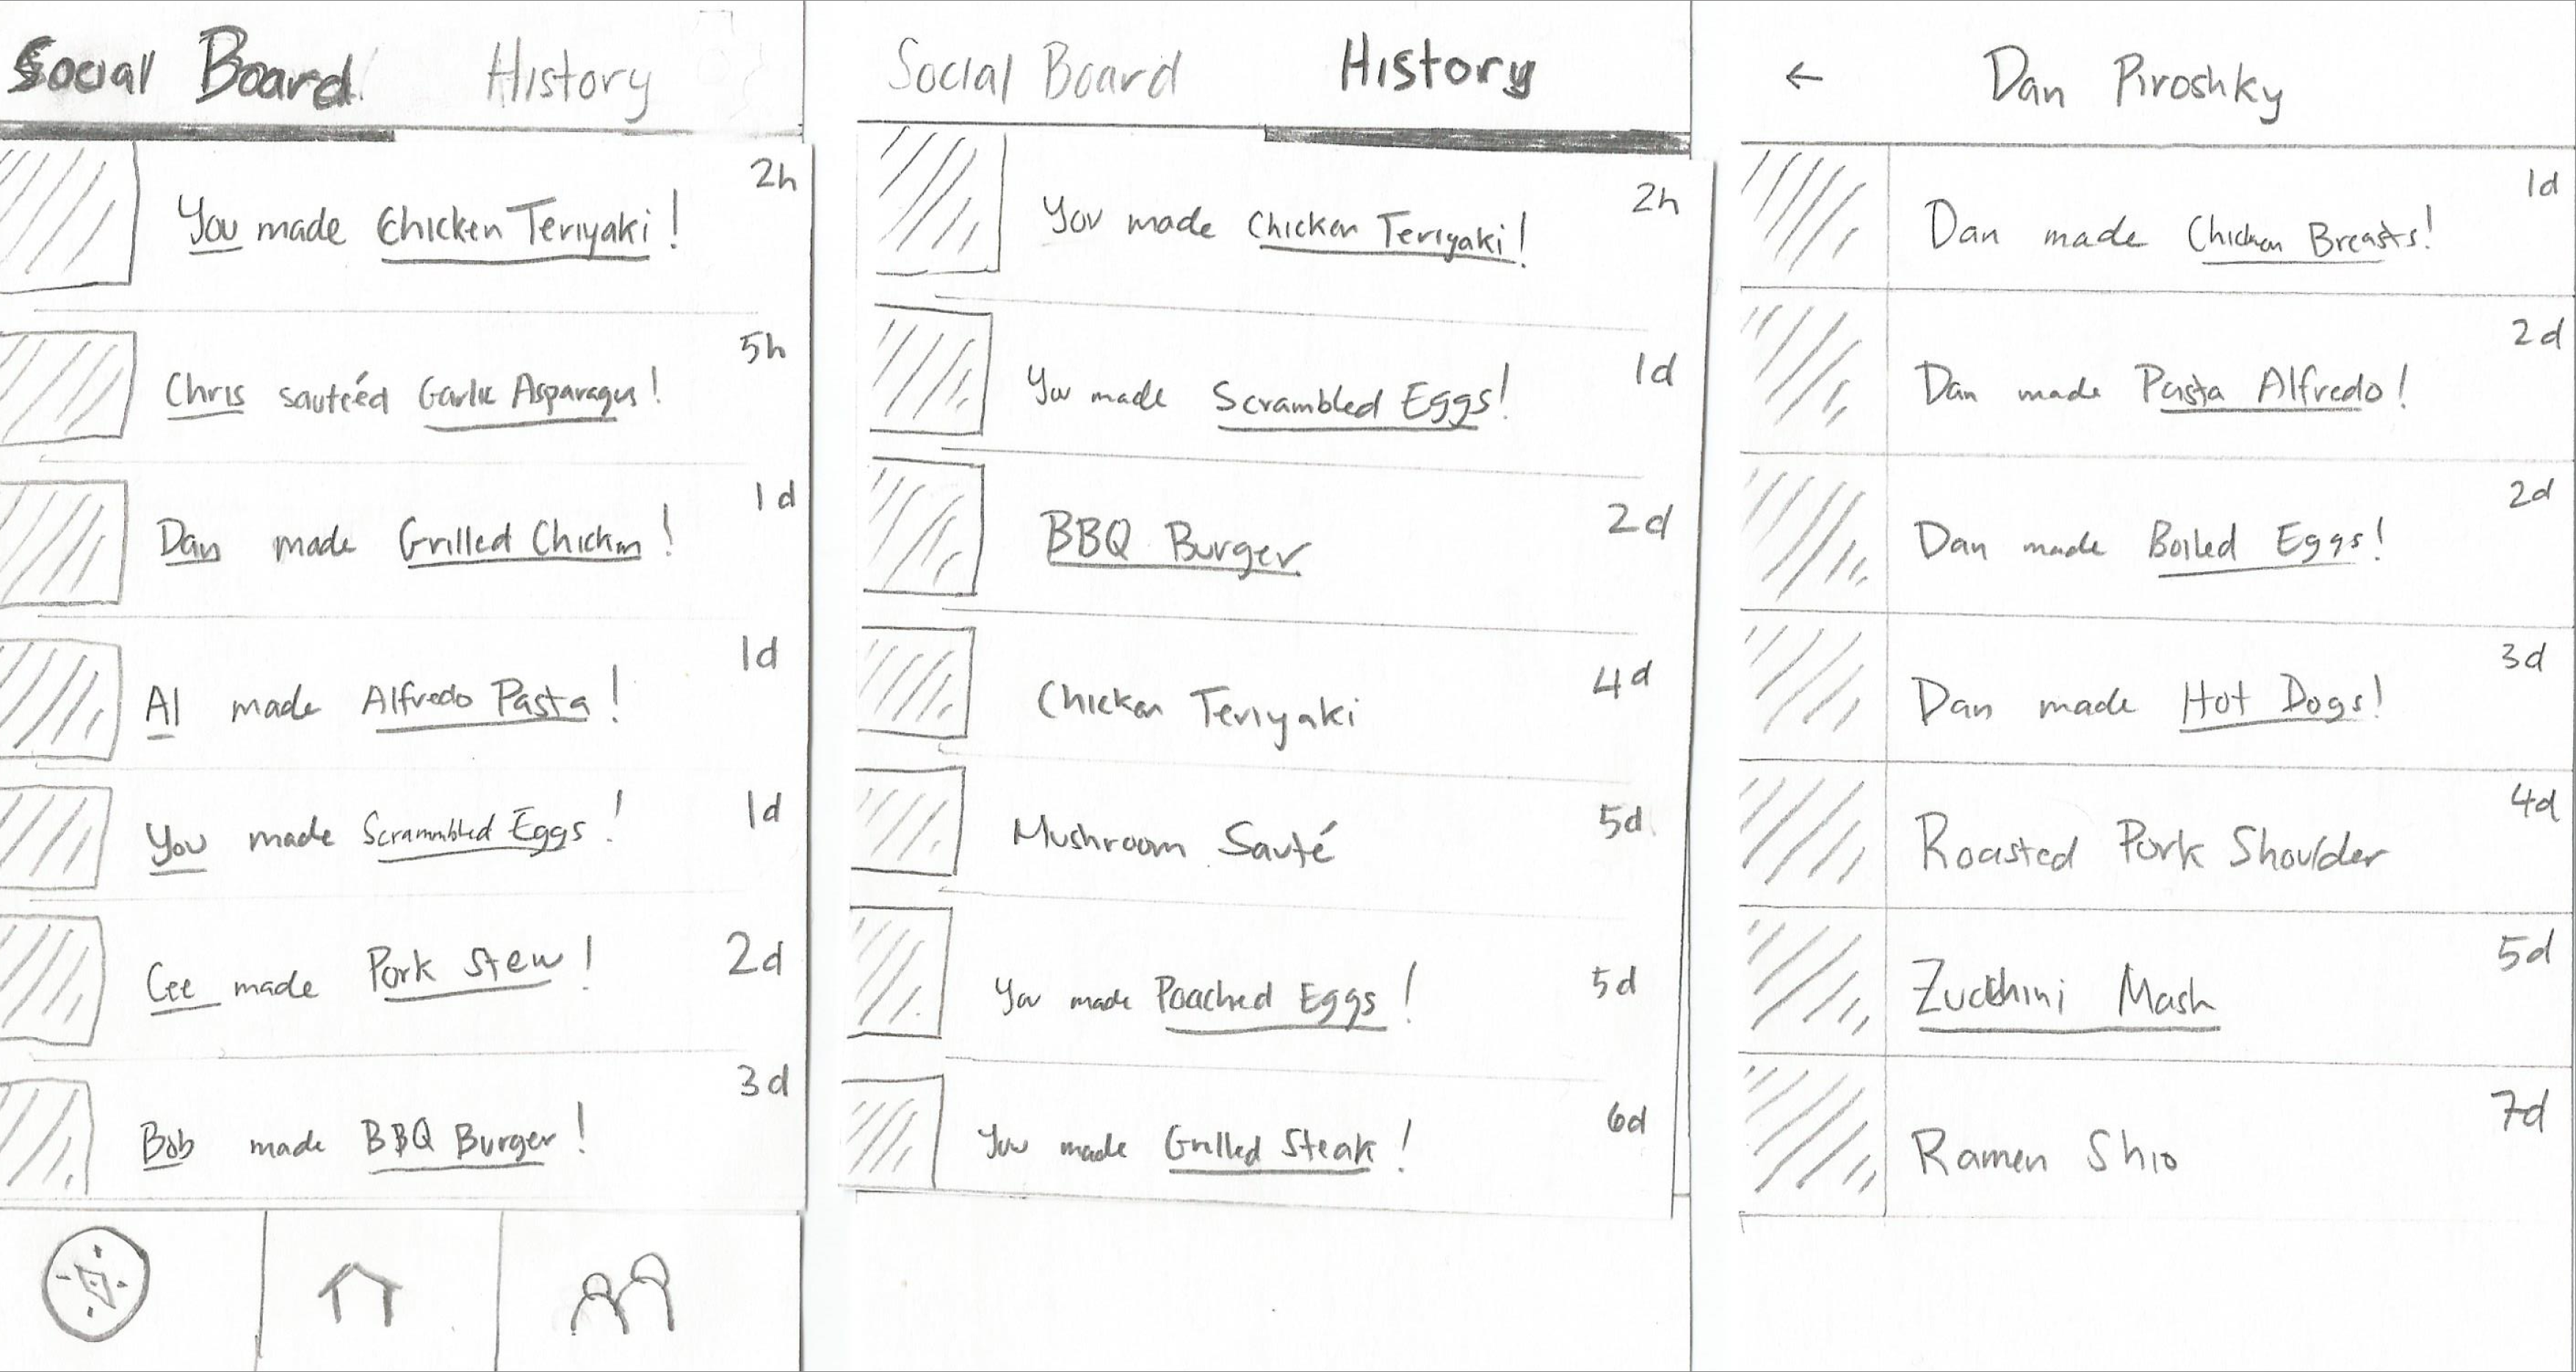 Social Board History
2h
You made Chicken Teriyaki!
5h
Chris sauteéd Garlic Asparagus!
1d
Dan made Grilled Chicken!
1d
Al made Alfredo Pasta!
1d
You made Scrammbled Eggs!
2d
Cee made Pork Stew!
3d
Bob made BBQ Burger!
Social Board History
2h
You made Chicken Teriyaki!
1d
You made Scrambled Eggs!
2d
BBQ Burger
4d
Chicken Teriyaki
5d
Mushroom Sauté
5d
You made Poached Eggs!
6d
You made Grilled Steak!
← Dan Piroshky
1d
Dan made Chicken Breasts!
2d
Dan made Pasta Alfredo!
2d
Dan made Boiled Eggs!
3d
Dan made Hot Dogs!
4d
Roasted Pork Shoulder
5d
Zucchini Mash
7d
Ramen Shio